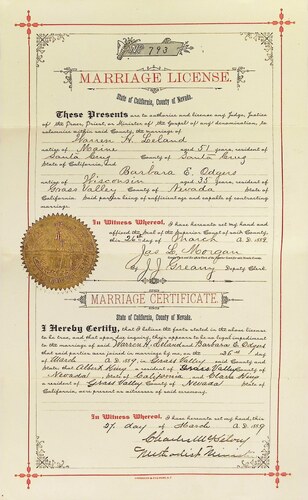 No. 793
MARRIAGE LICENSE.
State of California, County of Nevada.
These Presents are to authorize and license any Judge, Justice
of the Peace, Priest or Minister of the Gospel of any denomination, to
solemnize within said County, the marriage of
Warren H. Leland
native of Maine aged 51 years, resident of
Santa Cruz County of Santa Cruz
State of California and
Barbara E. Odgers
native of Wisconsin aged 35 years, resident of
Grass Valley County of Nevada State of
California. Said parties being of sufficient age and capable of contracting
marriage.
In Witness Whereof, I have hereunto set my hand and
affixed the Seal of the Superior Court of said County,
this day of March A.D. 1889
Jas. L. Morgan
by J. J. Greany Deputy Clerk
MARRIAGE CERTIFICATE.
State of California, County of Nevada.
I Hereby Certify, that I believe the facts stated in the above license
to be true, and that upon due inquiry, there appears to be no legal impediment
to the marriage of said Warren H. Leland and Barbara E. Odgers
that said parties were joined in marriage by me, on the 26th day of
March A.D. 1889, in Grass Valley said County and
State; that Albert King a resident of Grass Valley County of
Nevada State of California and Clara King
a resident of Grass Valley County of Nevada State of
California, were present as witnesses of said ceremony.
In Witness Whereof, I have hereunto set my hand, this
27. day of March A.D. 1889
Charles
Methodist Minister